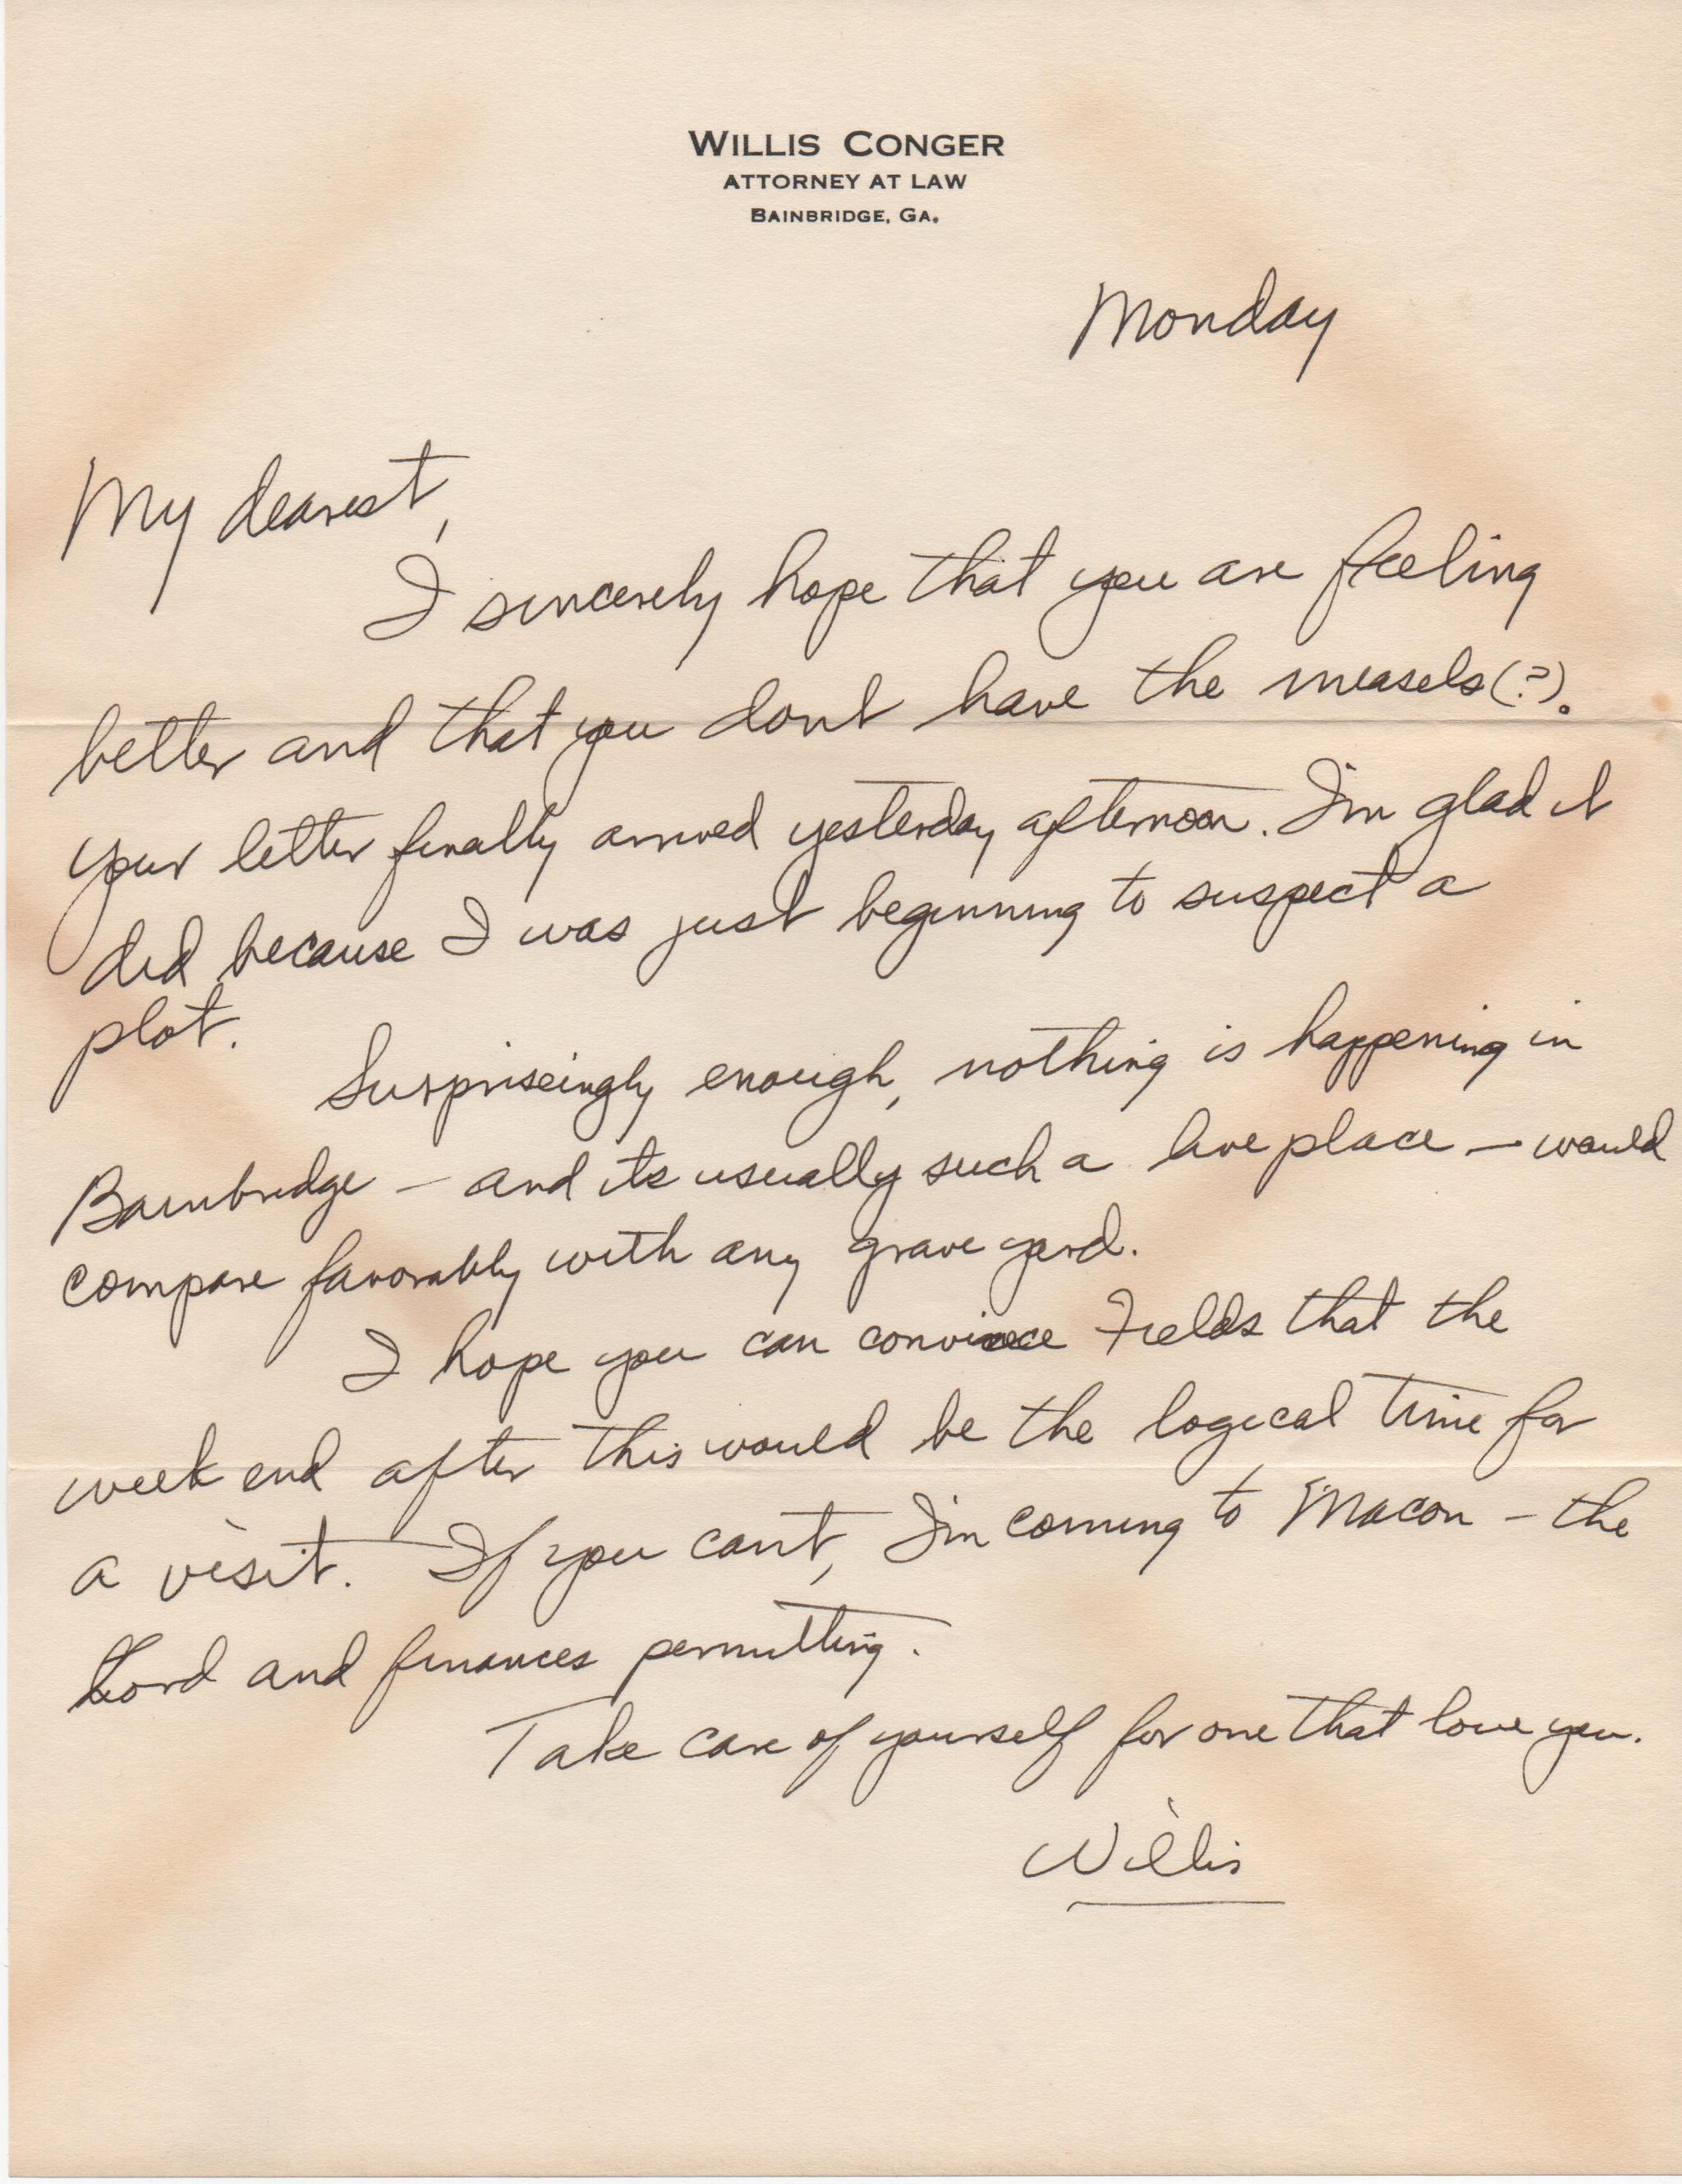 WILLIS CONGER
ATTORNEY AT LAW
BAINBRIDGE, GA.
Monday
My dearest,
I sincerely hope that you are feeling
better and that you dont have the measels(?).
Your letter finally arrived yesterday afternoon. I'm glad it
did because I was just beginning to suspect a
plot.
Surpriseingly enough, nothing is happening in
Bainbridge - and its usually such a live place - would
compare favorably with any grave yard.
I hope you can convince Fields that the
week end after this would be the logical time for
a visit. If you can't, I'm coming to Macon - the
Lord and finances permitting.
Take care of yourself for one that love you.
Willis